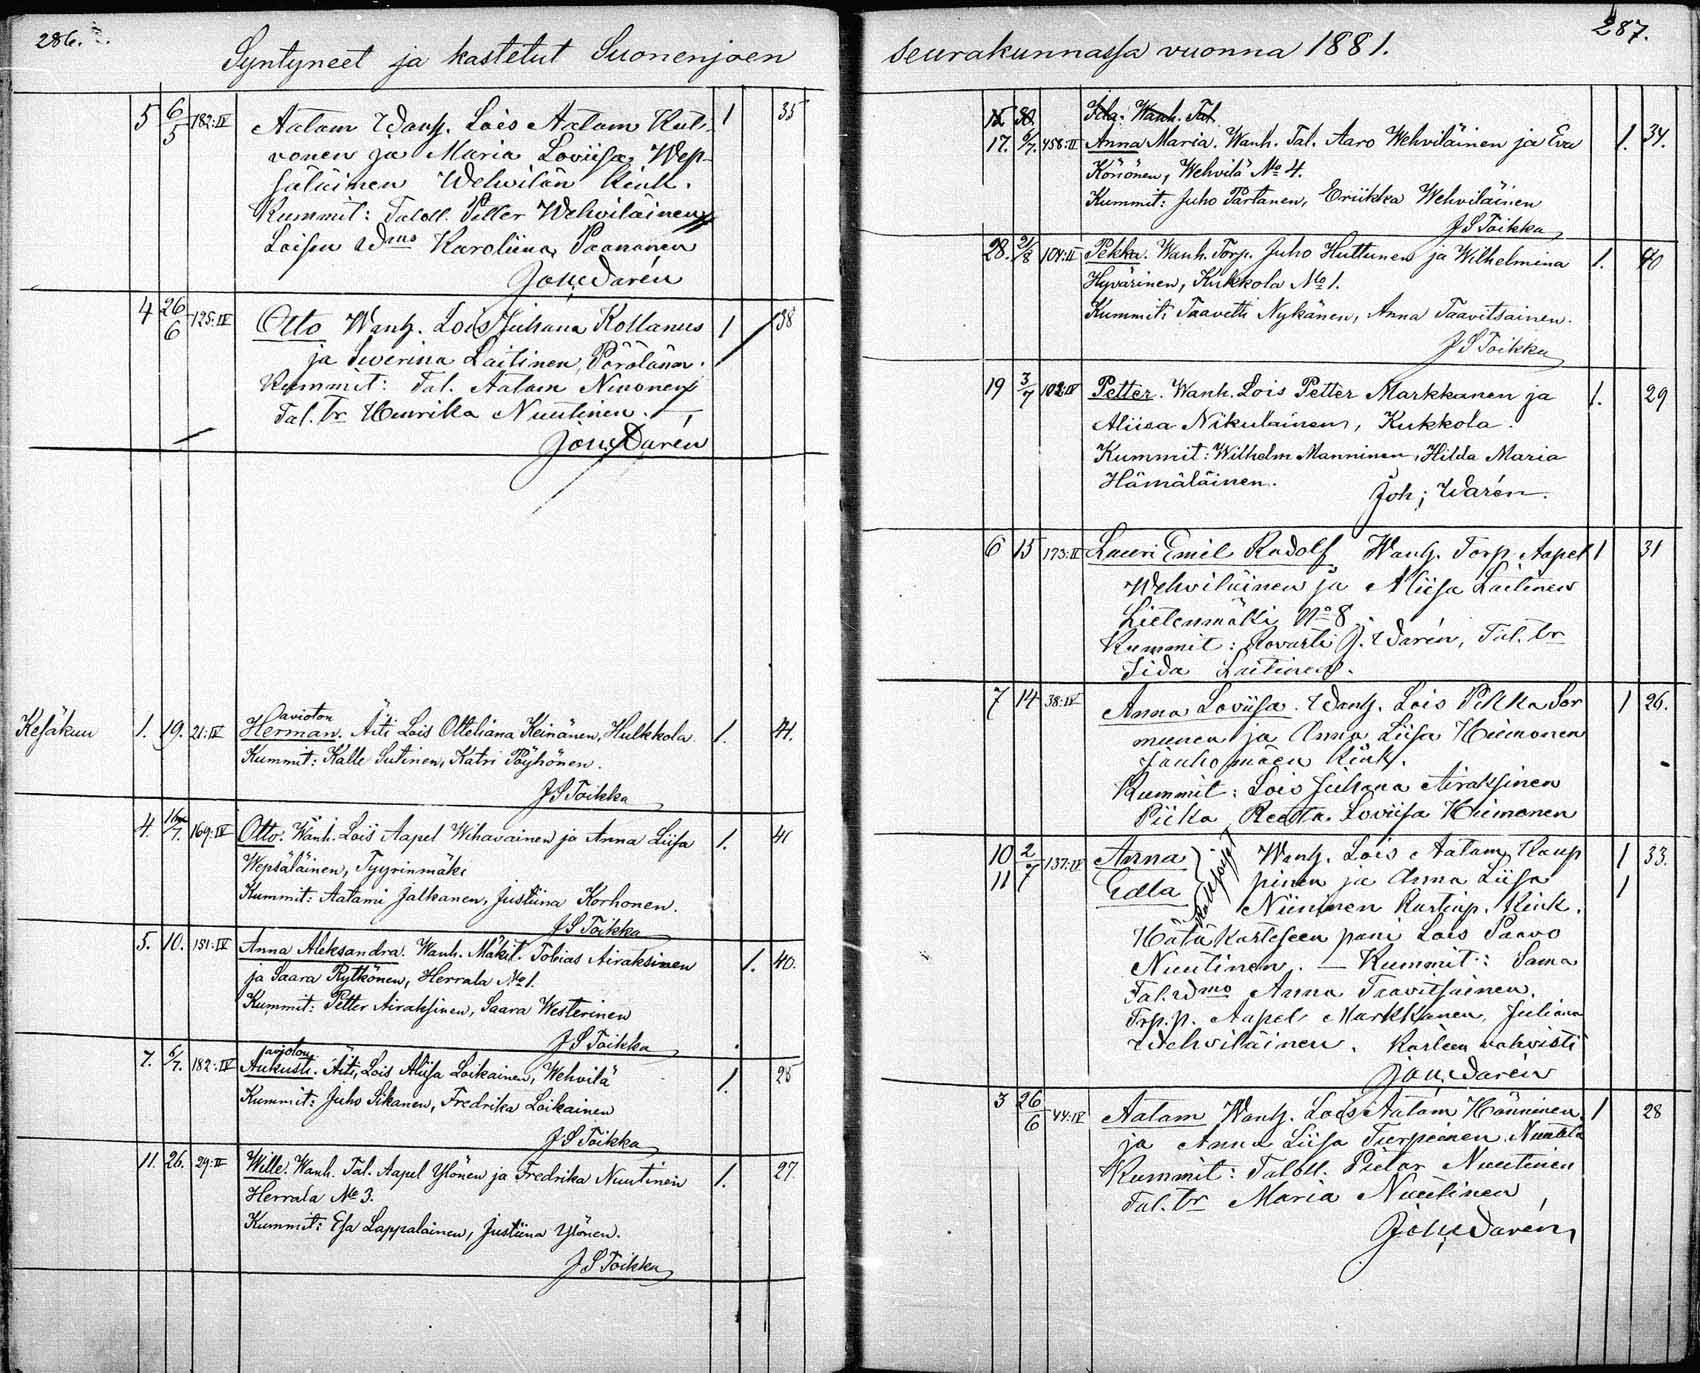 286.
Syntyneet ja kastetut Suonenjoen
5 6/5 182:IV Aatam Wanh. Lois Aatam Kut-
vonen ja Maria Loviisa Wep-
säläinen Wehvilän Kink.
Kummit: Taloll. Petter Wehviläinen
Loisen Karoliina Paananen
Joh; Warén
1 35
4 26/6 125:IV Otto Wanh. Lois Juhana Kollanus
ja Severina Laitinen, Pörölänm.
Kummit: Tal. Aatam Ninonen
Tal. tr Henrika Nuutinen.
Joh; Warén
1 38
Kesäkuu 1. 19. 21:IV avioton
Herman. Äiti Lois Otteliana Keinänen, Hulkkola.
Kummit: Kalle Sutinen, Katri Pöyhönen.
J S Toikka
1. 41.
4. 169:IV Otto. Wanh. Lois Aapel Wihavainen ja Anna Liisa
Wepsäläinen, Tyyrinmäki
Kummit: Aatami Jalkanen, Justiina Korhonen.
J S Toikka
1. 41
5. 10. 151:IV Anna Aleksandra. Wanh. Mäkit. Tobias Airaksinen
ja Saara Rytkönen, Herrala No 1.
Kummit: Petter Airaksinen, Saara Westerinen
J S Toikka
1. 40.
7. 6/7. 182:IV avioton
Aukusti. Äiti, Lois Aliisa Loikainen, Wehvilä
Kummit: Juho Sikanen, Fredrika Loikainen
J S Toikka
1. 25
11. 26. 29:II Wille. Wanh. Tal. Aapel Ylönen ja Fredrika Nuutinen
Herrala No 3.
Kummit: Esa Lappalainen, Justiina Ylönen.
J S Toikka
1. 27.
287.
seurakunnassa vuonna 1881.
Wanh. Tal.
17. 6/7. 458:II Anna Maria. Wanh. Tal. Aaro Wehviläinen ja Eva
Körönen, Wehvilä No 4.
Kummit: Juho Partanen, Eriikka Wehviläinen
J S Toikka
1. 34.
28. 21/8 104:II Pekka. Wanh. Torp. Juho Huttunen ja Wilhelmina
Hyvärinen, Kukkola No 1.
Kummit: Taavetti Nykänen, Anna Taavitsainen.
J S Toikka
1. 40
19 3/7 102:IV Petter. Wanh. Lois Petter Markkanen ja
Aliisa Nikulainen, Kukkola.
Kummit: Wilhelm Manninen, Hilda Maria
Hämäläinen.
Joh; Warén.
1. 29
6 15 173:II Lauri Emil Rudolf Wanh. Torp. Aapel
Wehviläinen ja Aliisa Laitinen
Lietenmäki No 8
Kummit: Rovasti J. Warén, Tal. tr
Iida Laitinen.
1 31
7 14 38:IV Anna Loviisa. Wanh. Lois Pekka Sor
munen ja Anna Liisa Hiimonen
Jauhomäen Kink.
Kummit: Lois Juhana Airaksinen
Piika Reetta Loviisa Hiimonen
1 26.
10 2/7 137:IV Anna Wanh. Lois Aatam Kaup
11 Edla pinen ja Anna Liisa
Kaksoiset
Niininen Kink.
Hätäkasteseen pani Lois Paavo
Nuutinen. — Kummit: Sama
Tal. Anna Taavitsainen.
Trp. p. Aapel Markkanen, Juliana
Wehviläinen. Kasteen vahvisti
Joh; Warén
1 33.
1
3 26/6 44:IV Aatam Wanh. Lois Aatam Hänninen
ja Anna Liisa Turpeinen, Nuutila
Kummit: Taloll. Pietar Nuutinen
Tal. tr Maria Nuutinen
Joh; Warén
1 28